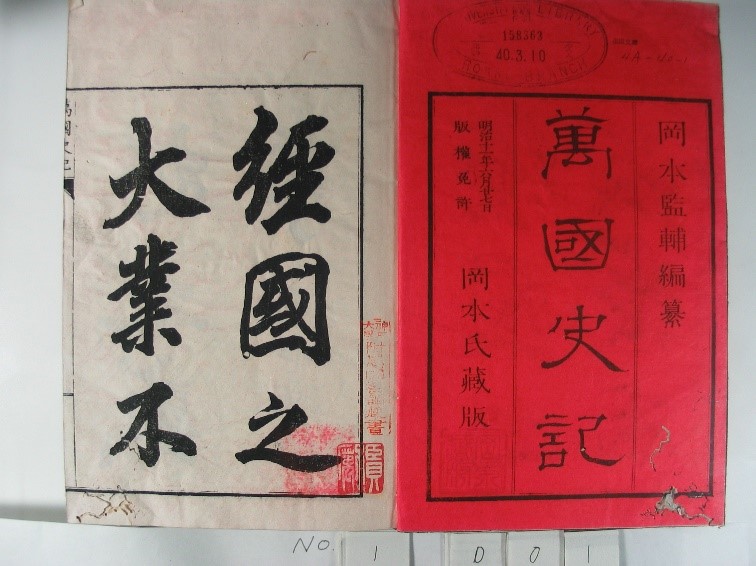 岡本監輔編纂
萬國史記
明治十一年六月廿七日
版權免許
岡本氏藏版
158363
40.3.10
經國之
大業不
No. 1 D 0 1